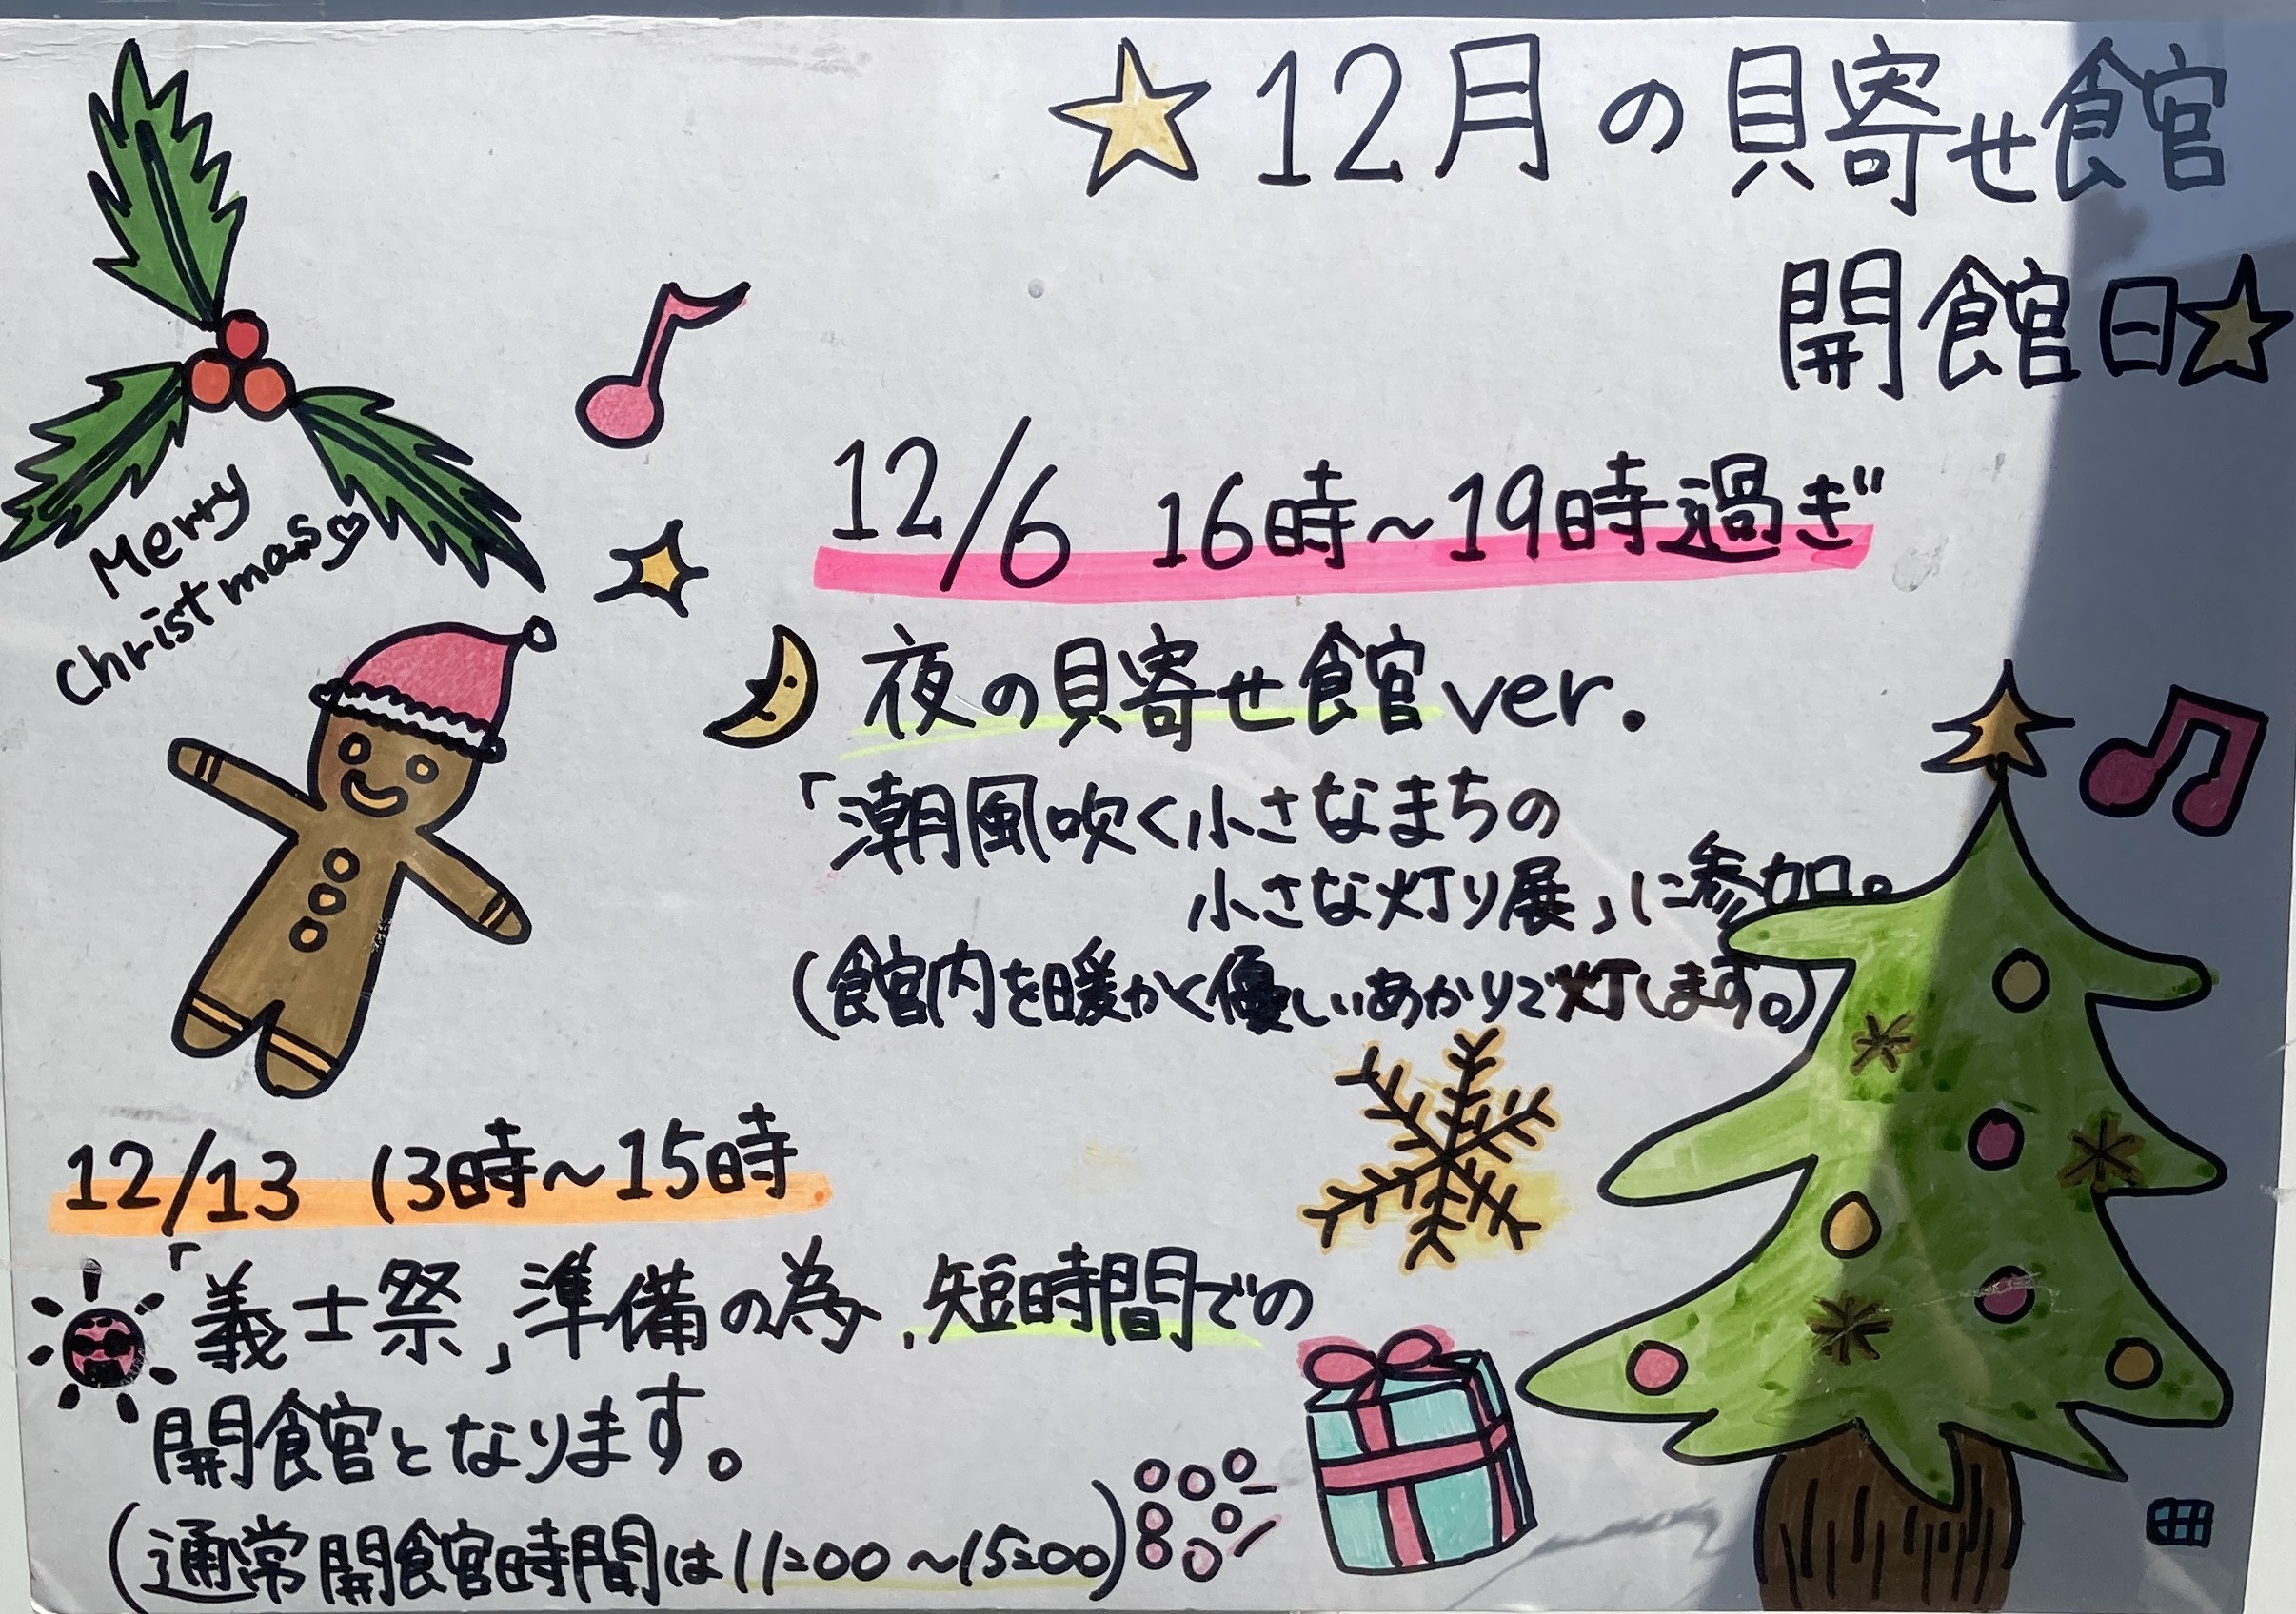 ☆12月の貝寄せ館
開館日☆
Merry
Christmas♡
12/6 16時～19時過ぎ
夜の貝寄せ館ver.
「潮風吹く小さなまちの
小さな灯り展」に参加。
(館内を暖かく優しいあかりで灯します。)
12/13 13時～15時
「義士祭」準備の為、短時間での
開館となります。
(通常開館時間は11:00～15:00)